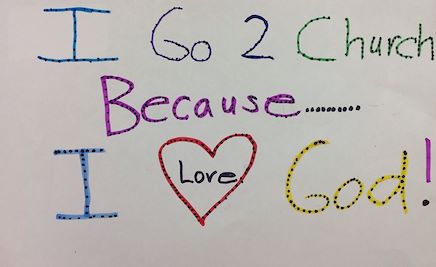 I Go 2 Church
Because..........
I Love God!